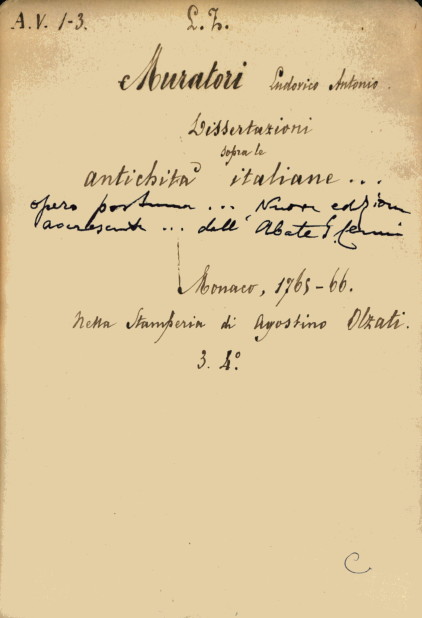 A.V. 1-3.
L.Z.
Muratori Ludovico Antonio.
Dissertazioni
sopra le
antichità italiane ...
opera postuma ... Nuova edizione
accresciuta ... dell' Abate G. Cenni
Monaco, 1765-66.
Nella Stamperia di Agostino Olzati.
3. 4.°
C